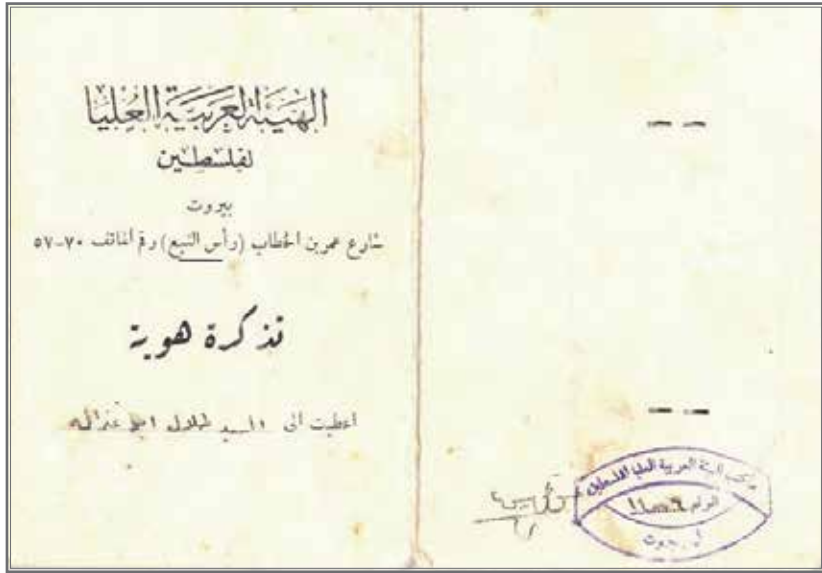 الهيئة العربية العليا
لفلسطين
بيروت
شارع عمر بن الخطاب (رأس النبع) رقم الهاتف ٧٠-٥٧
تذكرة هوية
اعطيت الى السيد طلال ابو غزاله
مكتب الهيئة العربية العليا لفلسطين
الرقم
بيروت